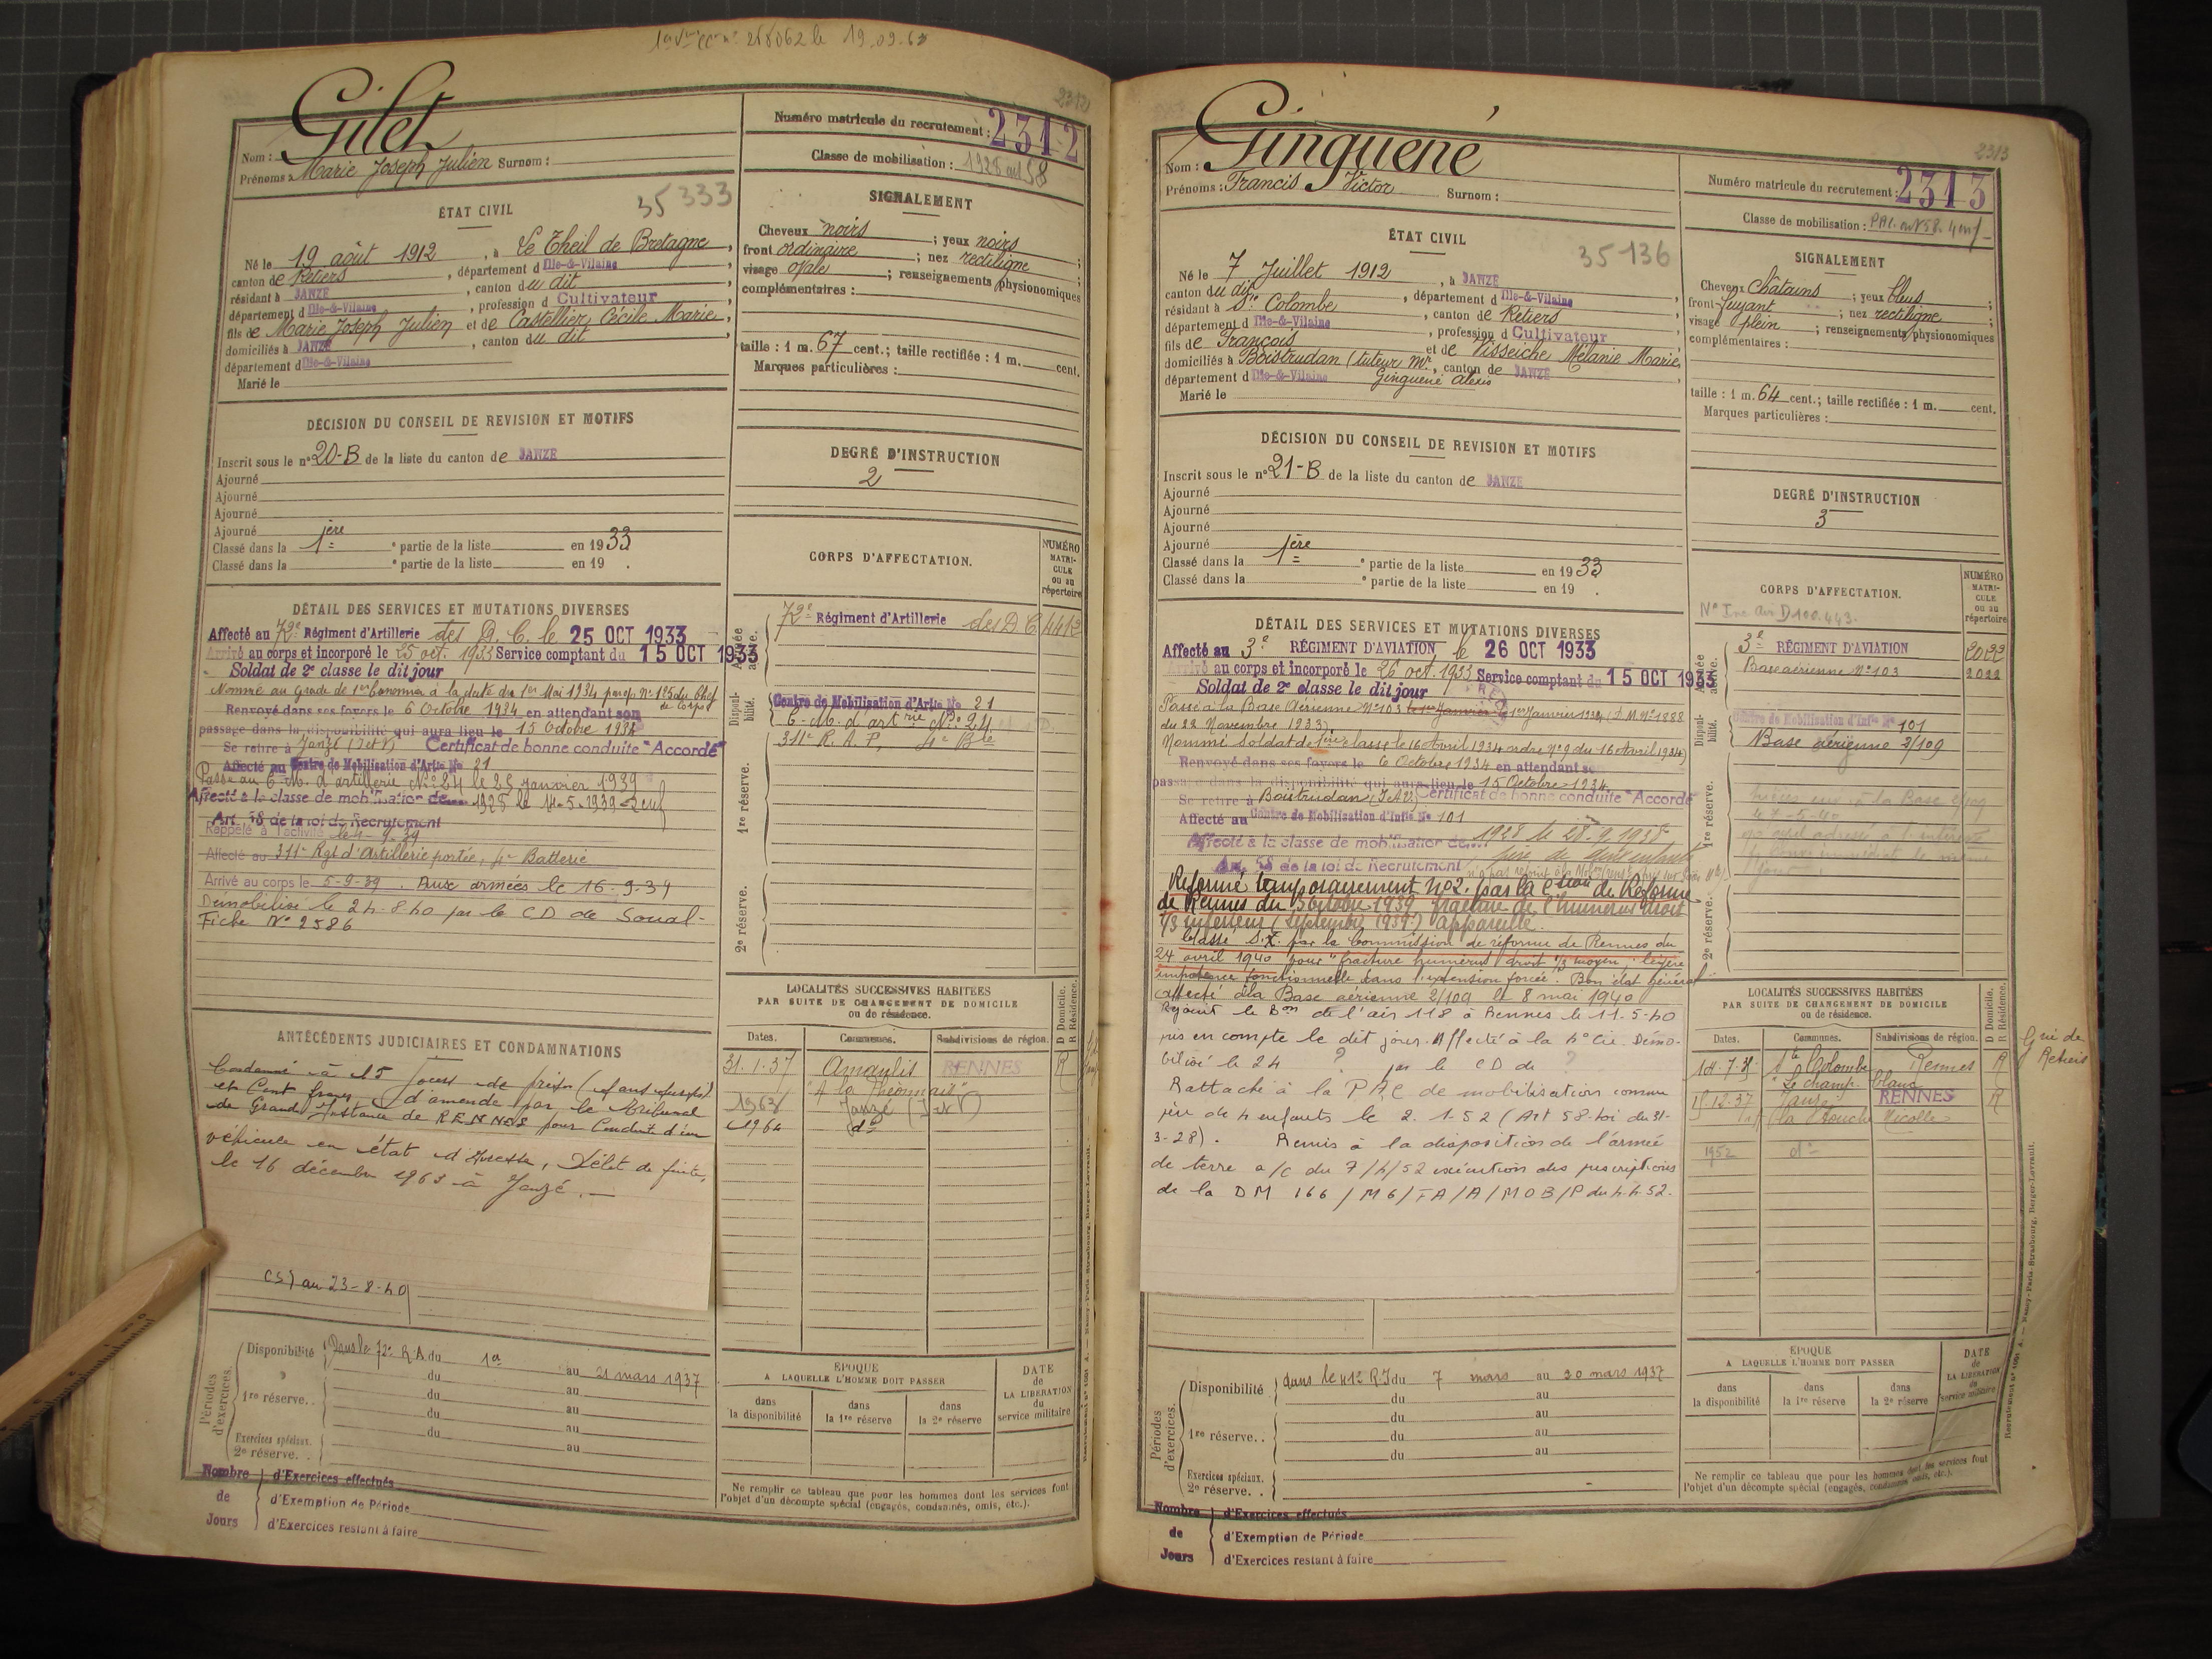 2312
Gilet
Nom :
Prénoms : Marie Joseph Julien Surnom :
Numéro matricule du recrutement : 2312
Classe de mobilisation :
35 333
ÉTAT CIVIL
Né le 19 août 1912, à Le Theil de Bretagne,
canton de Retiers, département d Ille-&-Vilaine
résidant à JANZÉ, canton du dit
département d Ille-&-Vilaine, profession d Cultivateur
fils de Marie Joseph Julien et de Castellier Cécile Marie,
domiciliés à JANZÉ, canton du dit
département d Ille-&-Vilaine
Marié le
SIGNALEMENT
Cheveux noirs ; yeux noirs
front ordinaire ; nez rectiligne ;
visage ovale ; renseignements physionomiques
complémentaires :
taille : 1 m. 67 cent.; taille rectifiée : 1 m. cent.
Marques particulières :
DÉCISION DU CONSEIL DE REVISION ET MOTIFS
Inscrit sous le n° 20-B de la liste du canton de JANZÉ
Ajourné
Ajourné
Ajourné
Ajourné
Classé dans la 1ère e partie de la liste en 1933
Classé dans la e partie de la liste en 19 .
DEGRÉ D'INSTRUCTION
2
CORPS D'AFFECTATION.
NUMÉRO MATRICULE ou au répertoire
72e Régiment d'Artillerie des D.C. 4412
Centre de Mobilisation d'Artie No 21
311e R. A. P. 4e Bie
Armée active.
Disponibilité.
1re réserve.
2e réserve.
DÉTAIL DES SERVICES ET MUTATIONS DIVERSES
Affecté au 72e Régiment d'Artillerie des D. C. le 25 OCT 1933
Arrivé au corps et incorporé le 25 oct. 1933 Service comptant du 15 OCT 1933
Soldat de 2e classe le dit jour
Nommé au grade de 1er Canonnier à la date du 1er Mai 1934 par op. n° 125 du Chef de Corps
Renvoyé dans ses foyers le 6 Octobre 1934 en attendant son
passage dans la disponibilité qui aura lieu le 15 Octobre 1934
Se retire à Janzé (I et V) Certificat de bonne conduite "Accordé"
Affecté au Centre de Mobilisation d'Artie No 21
Passé au C. M. d'artillerie N° 24 le 25 janvier 1939
Affecté à la classe de mobilisation de
Art. 58 de la loi de Recrutement
Rappelé à l'activité le 4-9-39
Affecté au 311e Rgt d'Artillerie portée, 4e Batterie
Arrivé au corps le 5-9-39. Aux armées le 16-9-39
Démobilisé le 24-8-40 par le CD de Soual-
Fiche N° 2586
ANTÉCÉDENTS JUDICIAIRES ET CONDAMNATIONS
Condamné à 15 jours de prison (sans sursis)
et Cent francs d'amende par le tribunal
de Grande Instance de RENNES pour Conduite d'un
véhicule en état d'ivresse, Délit de fuite,
le 16 décembre 1963 à Janzé.
CS) au 23-8-40
LOCALITÉS SUCCESSIVES HABITÉES
PAR SUITE DE CHANGEMENT DE DOMICILE
ou de résidence.
D Domicile.
R Résidence.
Dates. Communes. Subdivisions de région.
31.1.37 Amanlis RENNES R
1963 Janzé (I et V)
1964 do
Périodes d'exercices.
Disponibilité Dans le 72e R A du 1er au 21 mars 1937
du au
1re réserve. . du au
du au
du au
Exercices spéciaux. au
2e réserve. .
Nombre de Jours
d'Exercices effectués
d'Exemption de Période
d'Exercices restant à faire
ÉPOQUE
A LAQUELLE L'HOMME DOIT PASSER
dans la disponibilité
dans la 1re réserve
dans la 2e réserve
DATE de LA LIBÉRATION du service militaire
Ne remplir ce tableau que pour les hommes dont les services font
l'objet d'un décompte spécial (engagés, condamnés, omis, etc.).
2313
Ginguené
Nom :
Prénoms : Francis Victor Surnom :
Numéro matricule du recrutement : 2313
Classe de mobilisation :
35136
ÉTAT CIVIL
Né le 7 Juillet 1912, à JANZÉ
canton du dit, département d Ille-&-Vilaine
résidant à Ste Colombe, canton de Retiers
département d Ille-&-Vilaine, profession d Cultivateur
fils de François et de Visseiche Mélanie Marie,
domiciliés à Boistrudan (tuteur Mr Ginguené Alexis, canton de JANZÉ
département d Ille-&-Vilaine
Marié le
SIGNALEMENT
Cheveux châtains ; yeux bleus ;
front fuyant ; nez rectiligne ;
visage plein ; renseignements physionomiques
complémentaires :
taille : 1 m. 64 cent.; taille rectifiée : 1 m. cent.
Marques particulières :
DÉCISION DU CONSEIL DE REVISION ET MOTIFS
Inscrit sous le n° 21-B de la liste du canton de JANZÉ
Ajourné
Ajourné
Ajourné
Ajourné
Classé dans la 1ère e partie de la liste en 1933
Classé dans la e partie de la liste en 19 .
DEGRÉ D'INSTRUCTION
3
CORPS D'AFFECTATION.
NUMÉRO MATRICULE ou au répertoire
3e RÉGIMENT D'AVIATION 2022
Base aérienne N° 103 2022
Centre de Mobilisation d'Infie No 101
Base aérienne 2/109
Armée active.
Disponibilité.
1re réserve.
2e réserve.
DÉTAIL DES SERVICES ET MUTATIONS DIVERSES
Affecté au 3e RÉGIMENT D'AVIATION le 26 OCT 1933
Arrivé au corps et incorporé le 26 oct. 1933 Service comptant du 15 OCT 1933
Soldat de 2e classe le dit jour
Passé à la Base Aérienne N° 103 le 1er Janvier 1934 (D.M. N° 1888
du 22 Novembre 1933)
Nommé Soldat de 1ère classe le 16 Avril 1934 ordre N° 9 du 16 Avril 1934)
Renvoyé dans ses foyers le 6 Octobre 1934 en attendant son
passage dans la disponibilité qui aura lieu le 15 Octobre 1934
Se retire à Boistrudan (I.&V.) Certificat de bonne conduite "Accordé"
Affecté au Centre de Mobilisation d'Infie No 101
Affecté à la classe de mobilisation de 1928 le 28.9.1938
Art. 58 de la loi de Recrutement père de deux enfants
Réformé temporairement N°2. par la Cion de Réforme
de Rennes du 5 octobre 1939 fracture de l'humérus droit
1/3 inférieur (Septembre 1939) appareillé.
Classé S.X. par la Commission de réforme de Rennes du
24 avril 1940 pour "fracture humérus droit 1/3 moyen, légère
impotence fonctionnelle dans l'extension forcée". Bon état général
affecté à la Base aérienne 2/109 le 8 mai 1940
Rejoint le Bon de l'air 118 à Rennes le 11-5-40
pris en compte le dit jour. Affecté à la 4e Cie. Démo-
bilisé le 24 ? par le CD de ?
Rattaché à la P A C de mobilisation comme
père de 4 enfants le 2.1.52 (Art 58 loi du 31-
3-28). Remis à la disposition de l'armée
de terre a/c du 7/4/52 exécution des prescriptions
de la DM 166/M6/FA/A/MOB/P du 4.4.52.
LOCALITÉS SUCCESSIVES HABITÉES
PAR SUITE DE CHANGEMENT DE DOMICILE
ou de résidence.
D Domicile.
R Résidence.
Dates. Communes. Subdivisions de région.
Ste Colombe Rennes R
Le champ blanc
15.12.37 Janzé RENNES R
La Touche Nicolle
1952 do
Périodes d'exercices.
Disponibilité dans le 41e R.I du 7 mars au 20 mars 1937
du au
du au
1re réserve. . du au
du au
Exercices spéciaux.
2e réserve. .
Nombre de Jours
d'Exercices effectués
d'Exemption de Période
d'Exercices restant à faire
ÉPOQUE
A LAQUELLE L'HOMME DOIT PASSER
dans la disponibilité
dans la 1re réserve
dans la 2e réserve
DATE de LA LIBÉRATION du service militaire
Ne remplir ce tableau que pour les hommes dont les services font
l'objet d'un décompte spécial (engagés, condamnés, omis, etc.).